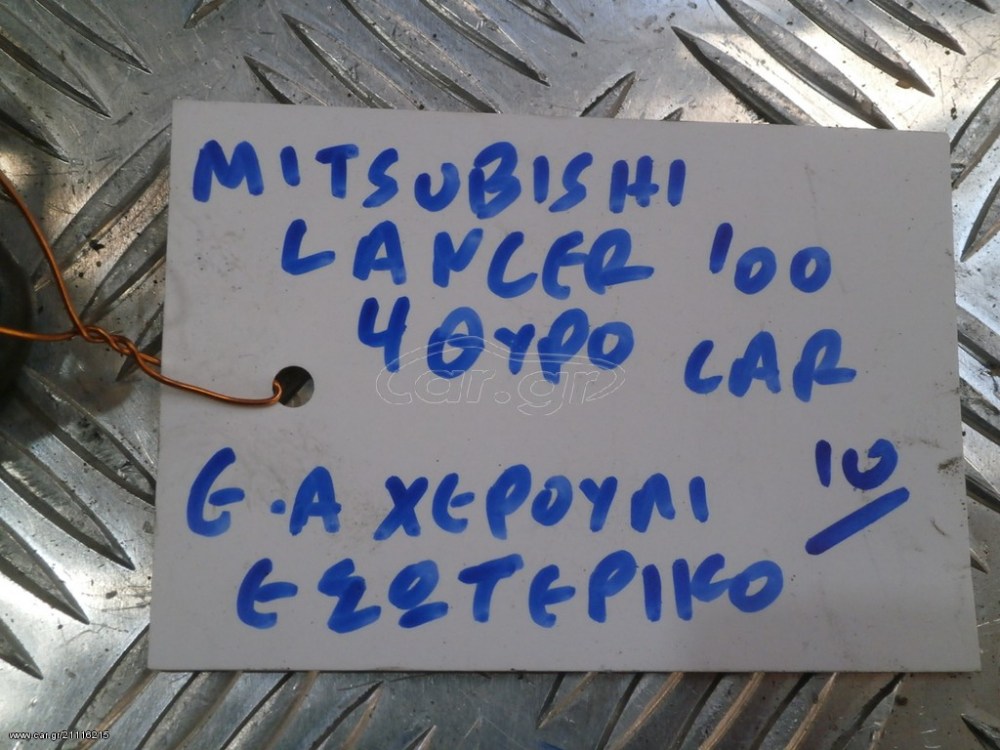 MITSUBISHI
LANCER '00
4ΘΥΡΟ CAR
car.gr
Ε.Α ΧΕΡΟΥΛΙ 10
ΕΣΩΤΕΡΙΚΟ
www.car.gr/21116215